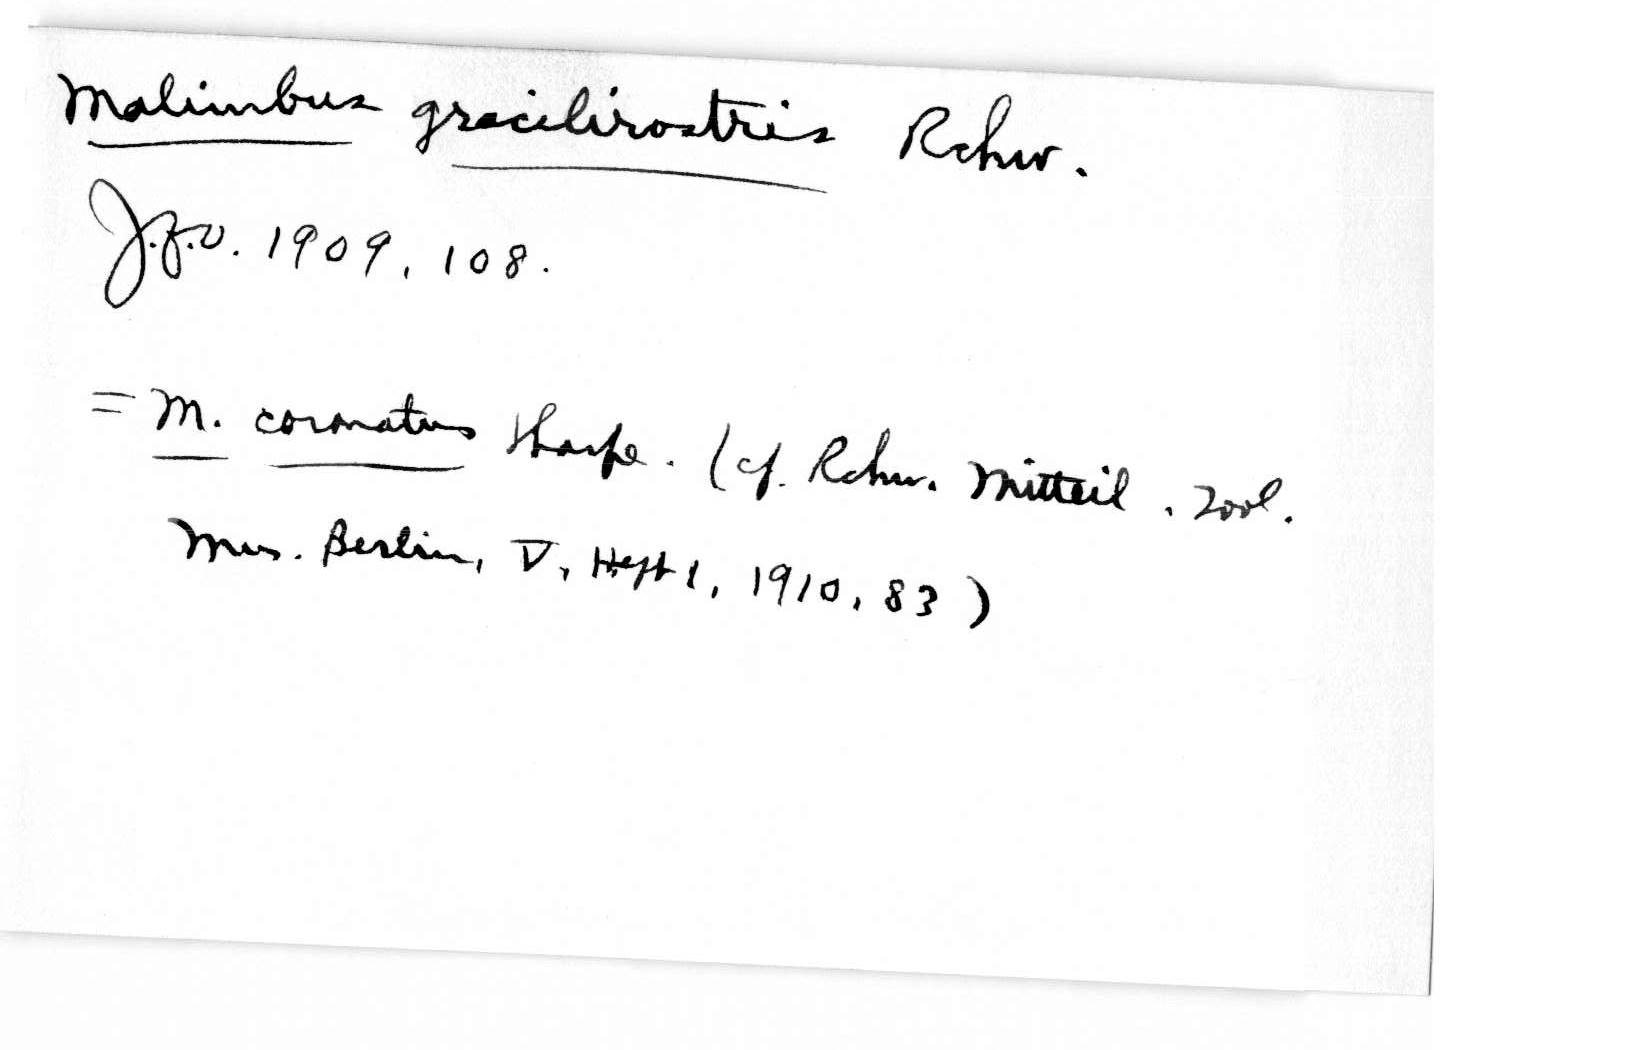 Malimbus gracilirostris Rchw.
J.f.O. 1909, 108.
= M. coronatus Sharpe. (cf. Rchw. Mitteil. Zool.
Mus. Berlin, V, Heft 1, 1910, 83)